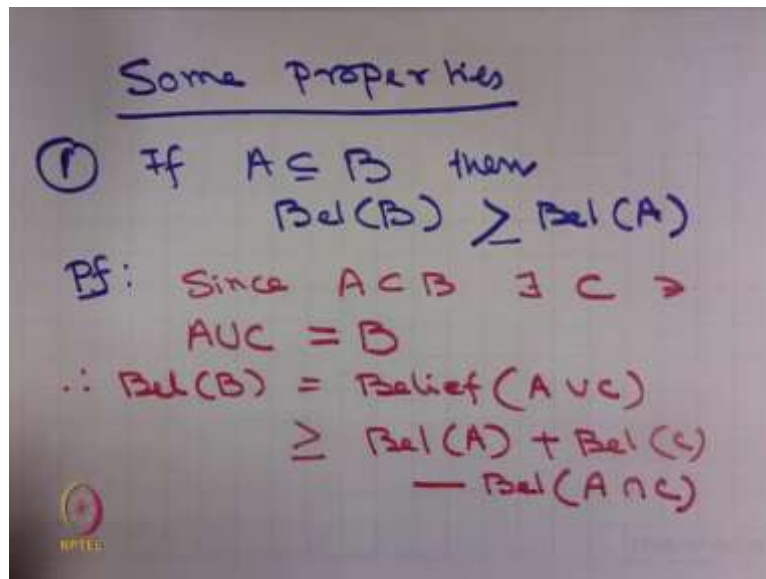 Some Properties
① If A ⊆ B then
Bel(B) ≥ Bel(A)
Pf: Since A ⊂ B ∃ C ∋
A∪C = B
∴ Bel(B) = Belief(A ∪ C)
≥ Bel(A) + Bel(C)
— Bel(A ∩ C)
NPTEL